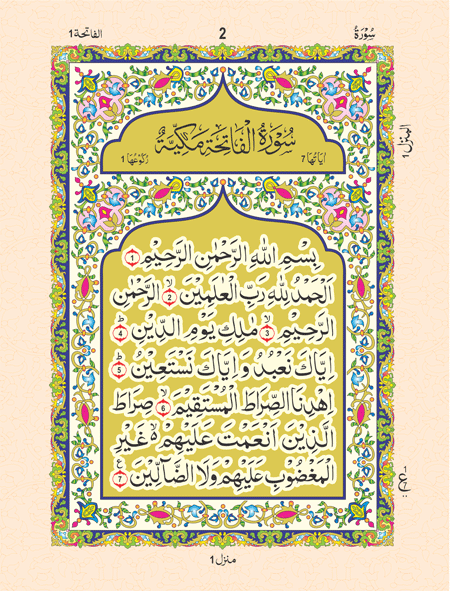 الفاتحة 1
2
سُوْرَةُ
سُوْرَةُ الْفَاتِحَةِ مَكِّيَّةٌ
اٰيَاتُهَا 7
رُكُوْعُهَا 1
المنزل 1
بِسْمِ اللّٰهِ الرَّحْمٰنِ الرَّحِيْمِ 1
اَلْحَمْدُ لِلّٰهِ رَبِّ الْعٰلَمِيْنَ ۙ 2 الرَّحْمٰنِ
الرَّحِيْمِ ۙ 3 مٰلِكِ يَوْمِ الدِّيْنِ ؕ 4
اِيَّاكَ نَعْبُدُ وَ اِيَّاكَ نَسْتَعِيْنُ ؕ 5
اِهْدِنَا الصِّرَاطَ الْمُسْتَقِيْمَ ۙ 6 صِرَاطَ
الَّذِيْنَ اَنْعَمْتَ عَلَيْهِمْ ۙ۬ غَيْرِ
الْمَغْضُوْبِ عَلَيْهِمْ وَلَا الضَّآلِّيْنَ ع 7
منزل 1